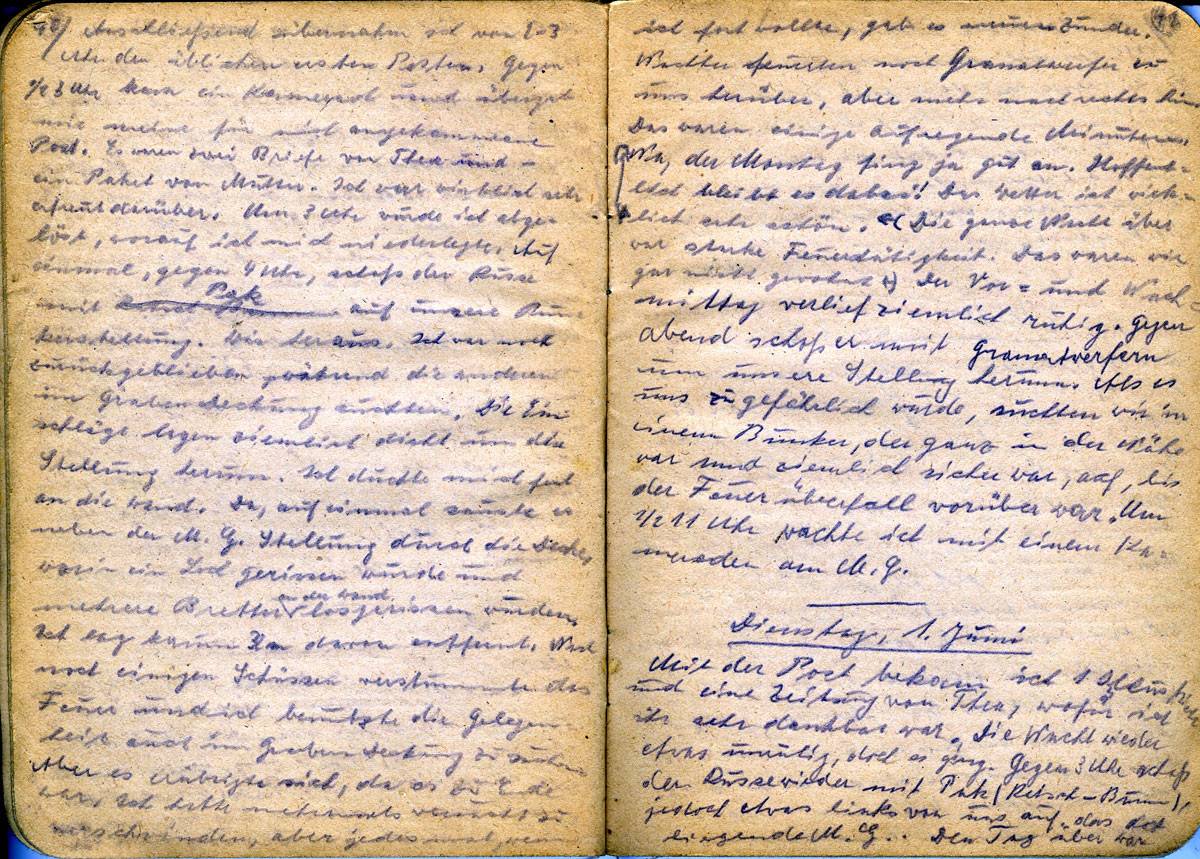 48) Anschließend übernahm ich von 2-3
Uhr den üblichen ersten Posten. Gegen
1/2 3 Uhr kam ein Kamerad und übergab
mir meine für mich angekommene
Post. Es waren zwei Briefe von Thea und -
ein Paket von Mutter. Ich war wirklich sehr
erfreut darüber. Um 3 Uhr wurde ich abge-
löst, worauf ich mich niederlegte. Auf
einmal, gegen 4 Uhr, schoß der Russe
mit Pak auf unsere Bun-
kerstellung. Wir heraus. Ich war noch
zurückgeblieben während die anderen
im Graben Deckung suchten. Die Ein-
schläge lagen ziemlich dicht um die
Stellung herum. Ich duckte mich fest
an die Wand. Da, auf einmal sauste es
neben der M. G. Stellung durch die Decke,
worin ein Loch gerissen wurde und
mehrere Bretter an der Wand losgerissen wurden.
Ich lag kaum 3 m davon entfernt. Nach
noch einigen Schüssen verstummte das
Feuer und ich benutzte die Gelegen-
heit auch im Graben Deckung zu suchen.
Aber es erübrigte sich, da es zu Ende
war. Ich hatte mehrmals versucht zu
verschwinden, aber jedesmal, wenn
ich fort wollte, gab es neuen Zunder.
Nachher feuerten noch Granatwerfer zu
uns herüber, aber mehr nach rechts hin.
Das waren einige aufregende Minuten.
Na, der Montag fing ja gut an. Hoffent-
lich bleibt es dabei! Das Wetter ist wirk-
lich sehr schön. (Die ganze Nacht über
war starke Feuertätigkeit. Das waren wir
gar nicht gewohnt.) Der Vor- und Nach-
mittag verlief ziemlich ruhig. Gegen
Abend schoß er mit Granatwerfern
um unsere Stellung herum. Als es
uns zu gefährlich wurde, suchten wir in
einem Bunker, der ganz in der Nähe
war und ziemlich sicher war, auf, bis
der Feuerüberfall vorüber war. Um
1/2 11 Uhr wachte ich mit einem Ka-
meraden am M. G.
Dienstag, 1. Juni
Mit der Post bekam ich 1
und eine Zeitung von Thea, wofür ich
ihr sehr dankbar war. Die Nacht wieder
etwas unruhig, doch es ging. Gegen 3 Uhr schoß
der Russe wieder mit Pak (Ratsch-Bum),
jedoch etwas links von uns auf das dort
liegende M. G.. Den Tag über war